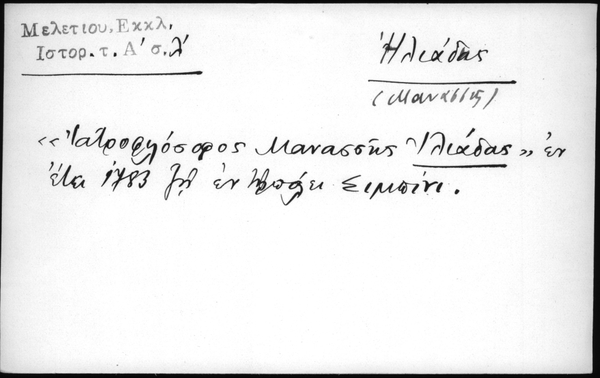 Μελετίου, Εκκλ.
Ιστορ. τ. Α' σ. λ'
Ἠλιάδης
(Μανασσῆς)
«Ἰατροφιλόσοφος Μανασσῆς Ἠλιάδας» ἐν
ἔτει 1783 ζῇ ἐν πόλει Σιμπίνι.